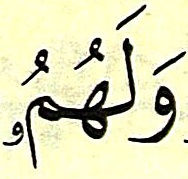 وَلَهُمُۥ